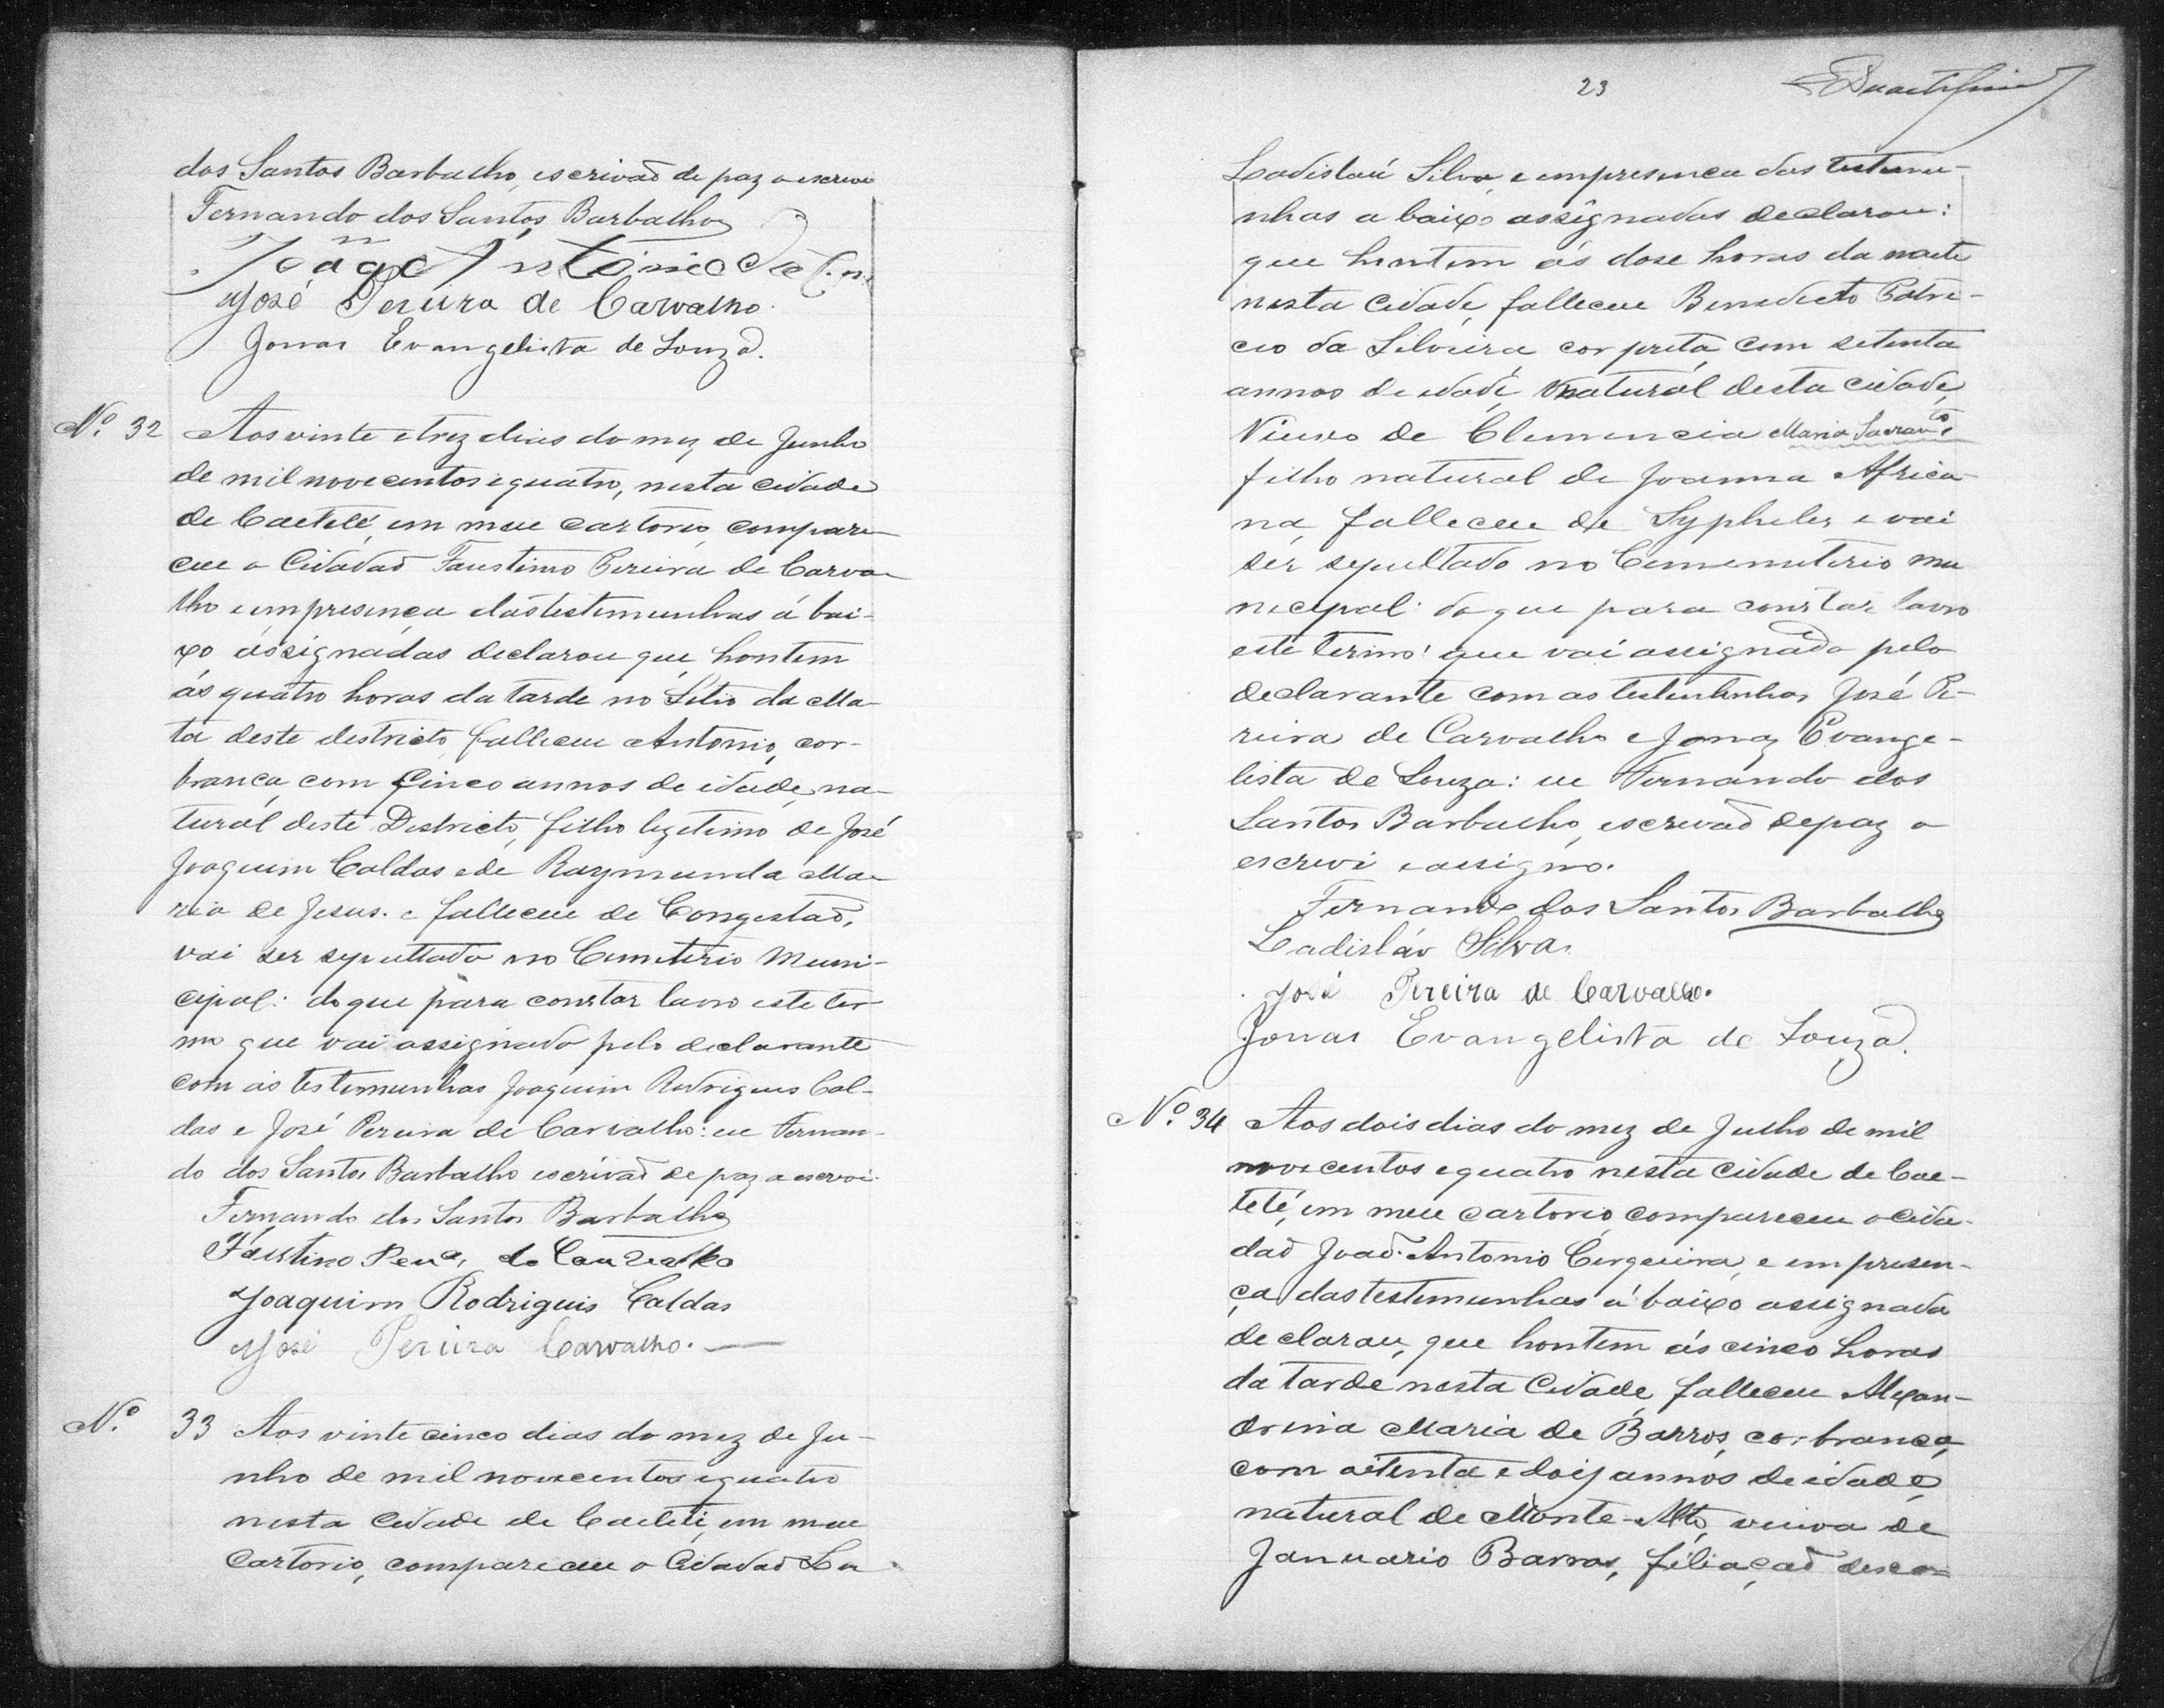 dos Santos Barbalho, escrivaõ de paz o escrevi
Fernando dos Santos Barbalho
João Antonio
José Pereira de Carvalho.
Jonas Evangelista de Souza.
Nº. 32 Aos vinte e trez dias do mez de Junho
de mil novecentos e quatro, nesta cidade
de Caeteté, em meu cartorio, compare-
ceu o Cidadaõ Faustino Pereira de Carva-
lho e em presença das testemunhas á bai-
xo assignadas declarou que hontem
ás quatro horas da tarde no Sitio da Ma-
ta deste districto falleceu Antonio, cor-
branca, com cinco annos de idade, na-
tural deste Districto, filho legetimo de José
Joaquim Caldas e de Raymunda Ma-
ria de Jesus. e falleceu de Congestaõ,
vai ser sepultado no Cemiterio Muni-
cipal: do que para constar lavro este ter-
mo que vai assignado pelo declarante
com as testemunhas Joaquim Rodrigues Cal-
das e José Pereira de Carvalho: eu Fernan-
do dos Santos Barbalho escrivaõ de paz o escrevi.
Fernando dos Santos Barbalho
Faustino Perª. de Carvalho
Joaquim Rodriguis Caldas
José Pereira Carvalho.
Nº. 33 Aos vinte cinco dias do mez de Ju-
nho de mil novecentos e quatro
nesta cidade de Caeteté, em meu
Cartorio, compareceu o Cidadaõ La
23
Ladislaú Silva, e em presenca das testemu-
nhas a baixo assignadas declarou:
que hontem ás dose horas da noite
nesta cidade, falleceu Benedicto Patri-
cio da Silveira cor preta, com setenta
annos de idade, natural desta cidade,
Viuvo de Clemencia Maria Sacramto,
filho natural de Joanna Africa-
na, falleceu de Syphiles e vai
ser sepultado no Cememiterio mu
necipal: do que para constar lavro
este termo que vai assignado pelo
declarante com as testemunhas José Pe-
reira de Carvalho e Jonas Evange-
lista de Souza: eu Fernando dos
Santos Barbalho, escrevaõ de paz o
escrevi e assigno.
Fernando dos Santos Barbalho
Ladisláo Silva.
José Pereira de Carvalho.
Jonas Evangelista de Souza.
Nº. 34 Aos dois dias do mez de Julho de mil
novecentos e quatro nesta cidade de Cae-
teté, em meu cartorio, compareceu o Cida-
daõ Joaõ Antonio Cerqueira, e em presen-
ça das testemunhas á baixo assignada
declarou, que hontem ás cinco horas
da tarde nesta Cidade, falleceu Alexan-
drina Maria de Barros, cor branca,
com oitenta e dois annos de idade,
natural de Monte-Alto, viuva de
Januario Barros, filiaçaõ desco-